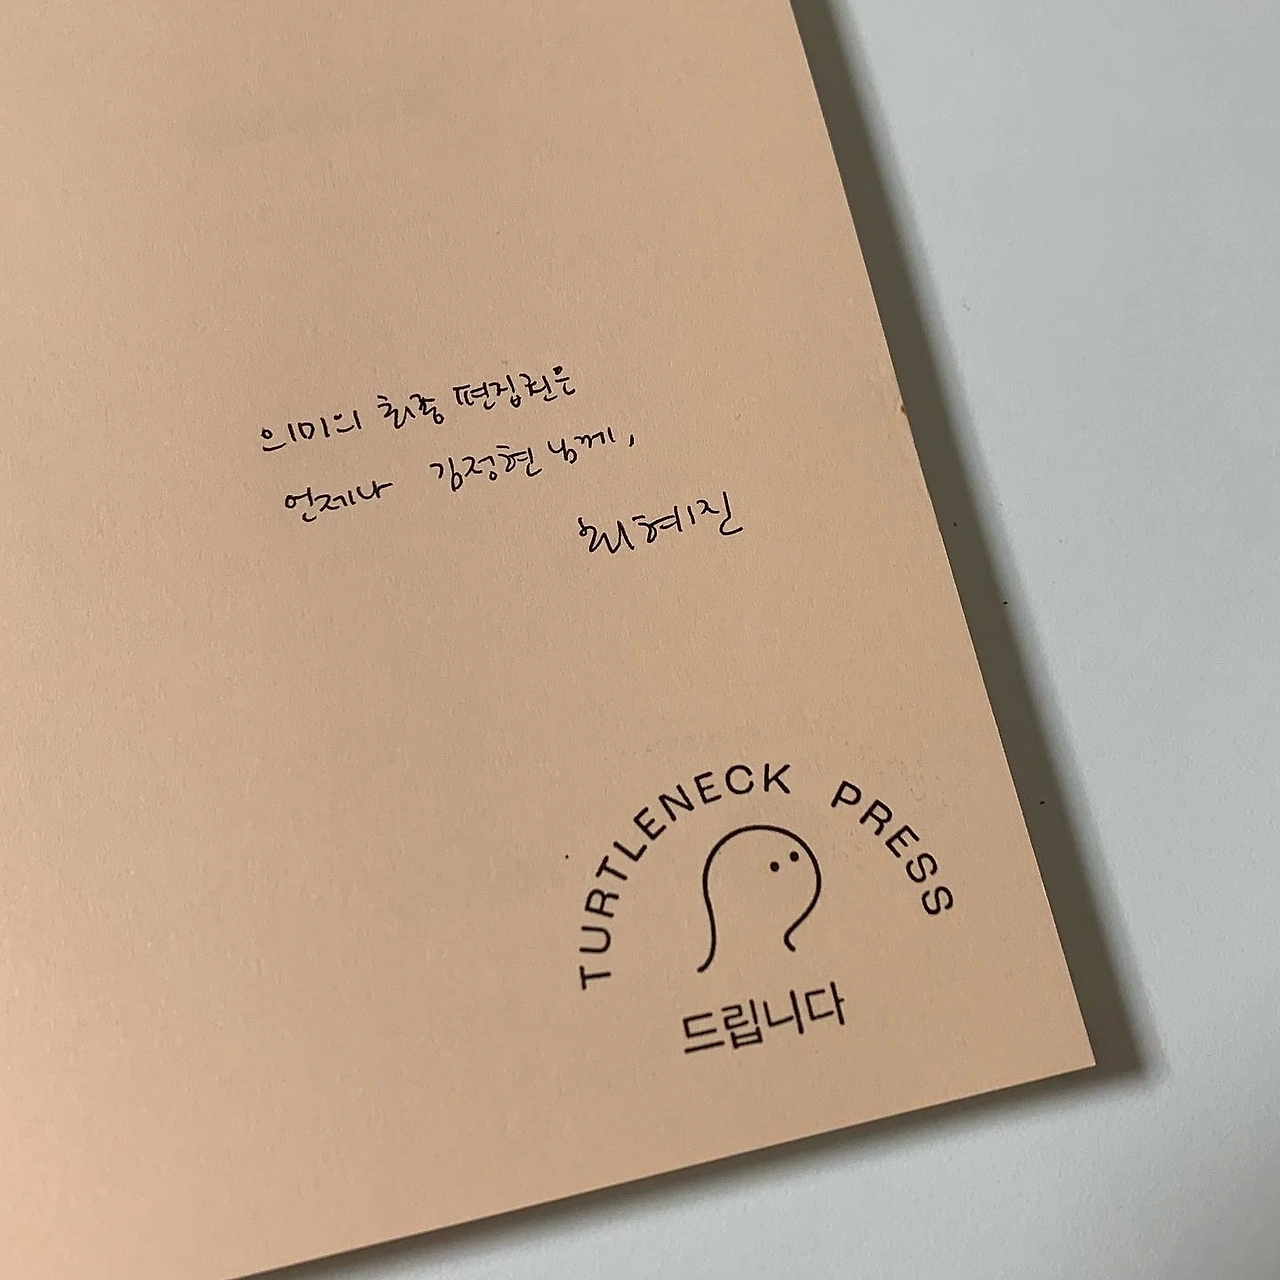 의미의 최종 편집권은
언제나 김정현 님께,
최혜진
TURTLENECK PRESS
드립니다